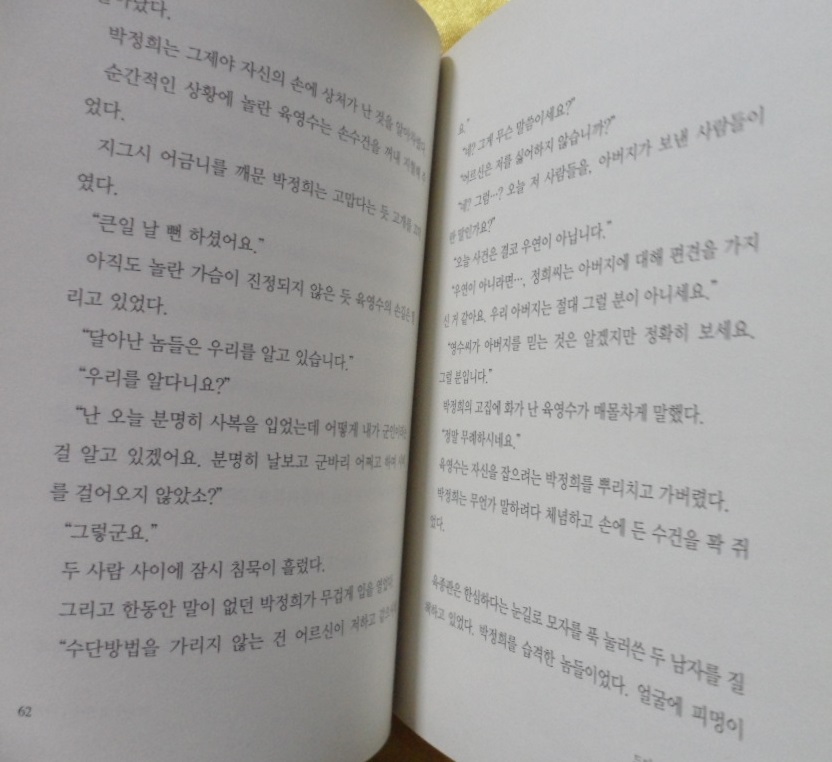 박정희는 그제야 자신의 손에 상처가 난 것을 알아차렸다.
순간적인 상황에 놀란 육영수는 손수건을 꺼내
었다.
지그시 어금니를 깨문 박정희는 고맙다는 듯 고개를
였다.
“큰일 날 뻔 하셨어요.”
아직도 놀란 가슴이 진정되지 않은 듯 육영수의 손길은
리고 있었다.
“달아난 놈들은 우리를 알고 있습니다.”
“우리를 알다니요?”
“난 오늘 분명히 사복을 입었는데 어떻게 내가
걸 알고 있겠어요. 분명히 날보고 군바리 어쩌고 하며
를 걸어오지 않았소?”
“그렇군요.”
두 사람 사이에 잠시 침묵이 흘렀다.
그리고 한동안 말이 없던 박정희가 무겁게 입을 열었다.
“수단방법을 가리지 않는 건 어르신이 저하고
62
요.”
“네? 그게 무슨 말씀이세요?”
“어르신은 저를 싫어하지 않습니까?”
“네? 그럼…? 오늘 저 사람들을, 아버지가 보낸 사람들이
란 말인가요?”
“오늘 사건은 결코 우연이 아닙니다.”
“우연이 아니라면…, 정희씨는 아버지에 대해 편견을 가지
신 거 같아요. 우리 아버지는 절대 그럴 분이 아니세요.”
“영수씨가 아버지를 믿는 것은 알겠지만 정확히 보세요.
그럴 분입니다.”
박정희의 고집에 화가 난 육영수가 매몰차게 말했다.
“정말 무례하시네요.”
육영수는 자신을 잡으려는 박정희를 뿌리치고 가버렸다.
박정희는 무언가 말하려다 체념하고 손에 든 수건을 꽉 쥐
었다.
육종관은 한심하다는 눈길로 모자를 푹 눌러쓴 두 남자를 질
책하고 있었다. 박정희를 습격한 놈들이었다. 얼굴에 피멍이